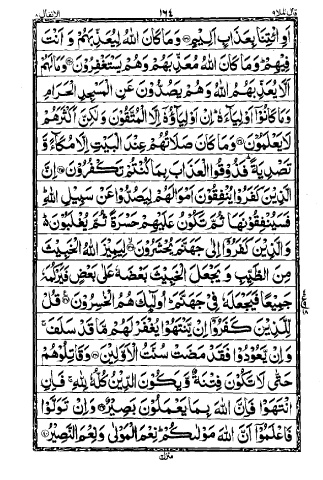 قال الملا ٩ ١٦٤ الانفال ٨
اَوِ ائْتِنَا بِعَذَابٍ اَلِیْمٍ وَمَا كَانَ اللّٰهُ لِیُعَذِّبَهُمْ وَ اَنْتَ
فِیْهِمْ وَمَا كَانَ اللّٰهُ مُعَذِّبَهُمْ وَهُمْ یَسْتَغْفِرُوْنَ وَمَا لَهُمْ
اَلَّا یُعَذِّبَهُمُ اللّٰهُ وَهُمْ یَصُدُّوْنَ عَنِ الْمَسْجِدِ الْحَرَامِ
وَمَا كَانُوْۤا اَوْلِیَآءَهٗ اِنْ اَوْلِیَآؤُهٗۤ اِلَّا الْمُتَّقُوْنَ وَلٰكِنَّ اَكْثَرَهُمْ
لَا یَعْلَمُوْنَ وَمَا كَانَ صَلَاتُهُمْ عِنْدَ الْبَیْتِ اِلَّا مُكَآءً وَّ
تَصْدِیَةً فَذُوْقُوا الْعَذَابَ بِمَا كُنْتُمْ تَكْفُرُوْنَ اِنَّ
الَّذِیْنَ كَفَرُوْا یُنْفِقُوْنَ اَمْوَالَهُمْ لِیَصُدُّوْا عَنْ سَبِیْلِ اللّٰهِ
فَسَیُنْفِقُوْنَهَا ثُمَّ تَكُوْنُ عَلَیْهِمْ حَسْرَةً ثُمَّ یُغْلَبُوْنَ
وَالَّذِیْنَ كَفَرُوْۤا اِلٰی جَهَنَّمَ یُحْشَرُوْنَ لِیَمِیْزَ اللّٰهُ الْخَبِیْثَ
مِنَ الطَّیِّبِ وَ یَجْعَلَ الْخَبِیْثَ بَعْضَهٗ عَلٰی بَعْضٍ فَیَرْكُمَهٗ
جَمِیْعًا فَیَجْعَلَهٗ فِیْ جَهَنَّمَ اُولٰٓئِكَ هُمُ الْخٰسِرُوْنَ قُلْ
لِّلَّذِیْنَ كَفَرُوْۤا اِنْ یَّنْتَهُوْا یُغْفَرْ لَهُمْ مَّا قَدْ سَلَفَ
وَ اِنْ یَّعُوْدُوْا فَقَدْ مَضَتْ سُنَّتُ الْاَوَّلِیْنَ وَقَاتِلُوْهُمْ
حَتّٰی لَا تَكُوْنَ فِتْنَةٌ وَّ یَكُوْنَ الدِّیْنُ كُلُّهٗ لِلّٰهِ فَاِنِ
انْتَهَوْا فَاِنَّ اللّٰهَ بِمَا یَعْمَلُوْنَ بَصِیْرٌ وَاِنْ تَوَلَّوْا
فَاعْلَمُوْۤا اَنَّ اللّٰهَ مَوْلٰىكُمْ نِعْمَ الْمَوْلٰی وَنِعْمَ النَّصِیْرُ
منزل